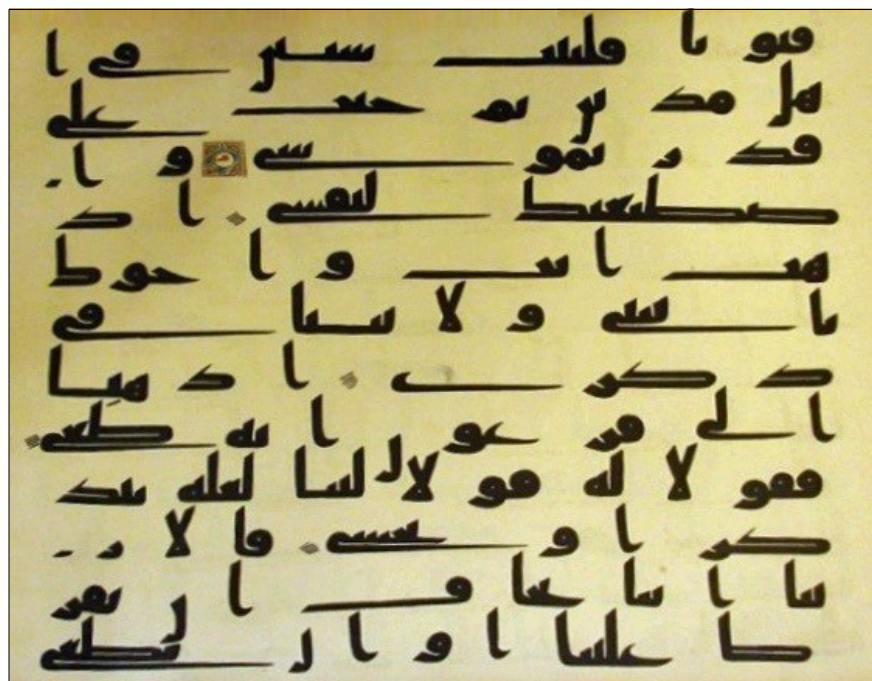 فتونا فلبثت سنين في ا
هل مدين ثم جئت على
قدر يموسى وا
صطنعتك لنفسي اذ
هب انت واخوك
بايتي ولا تنيا في
ذكري اذهبا
الى فرعون انه طغى
فقولا له قولا لينا لعله يتذ
كر او يخشى قالا ر
بنا اننا نخاف ان يفر
ط علينا او ان يطغى